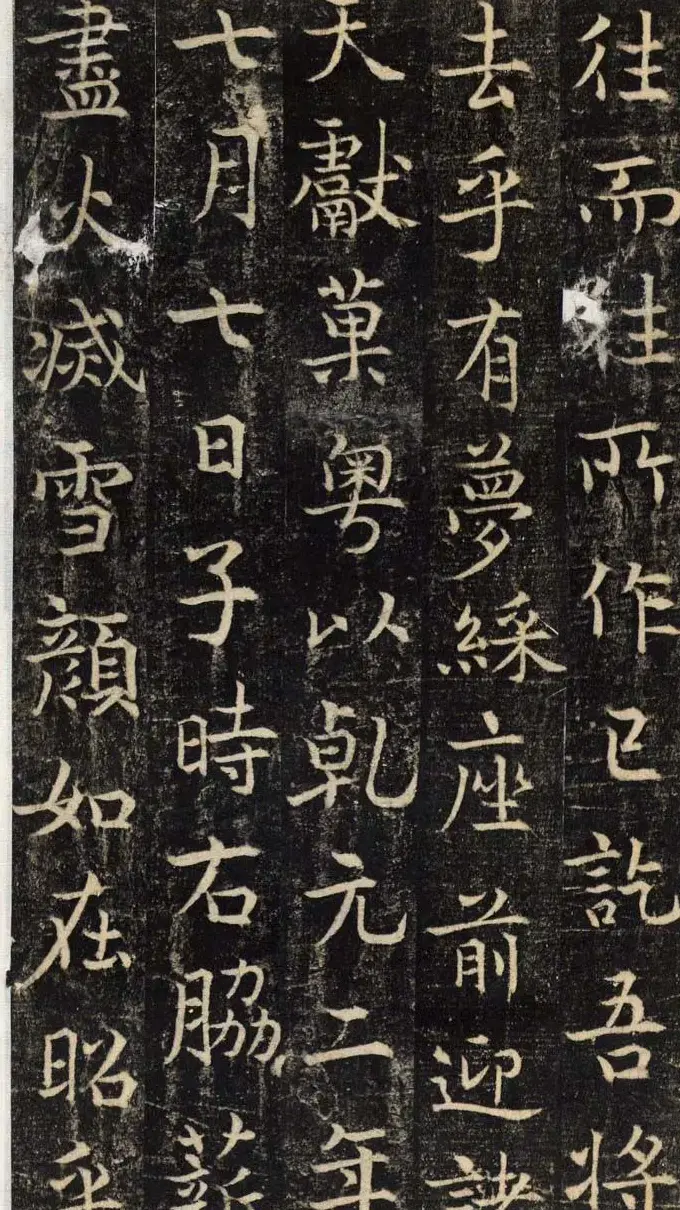 往而往所作已訖吾將
去乎有夢綵座前迎諸
天獻菓粤以乹元二年
七月七日子時右脇薪
盡火滅雪顏如在昭乎